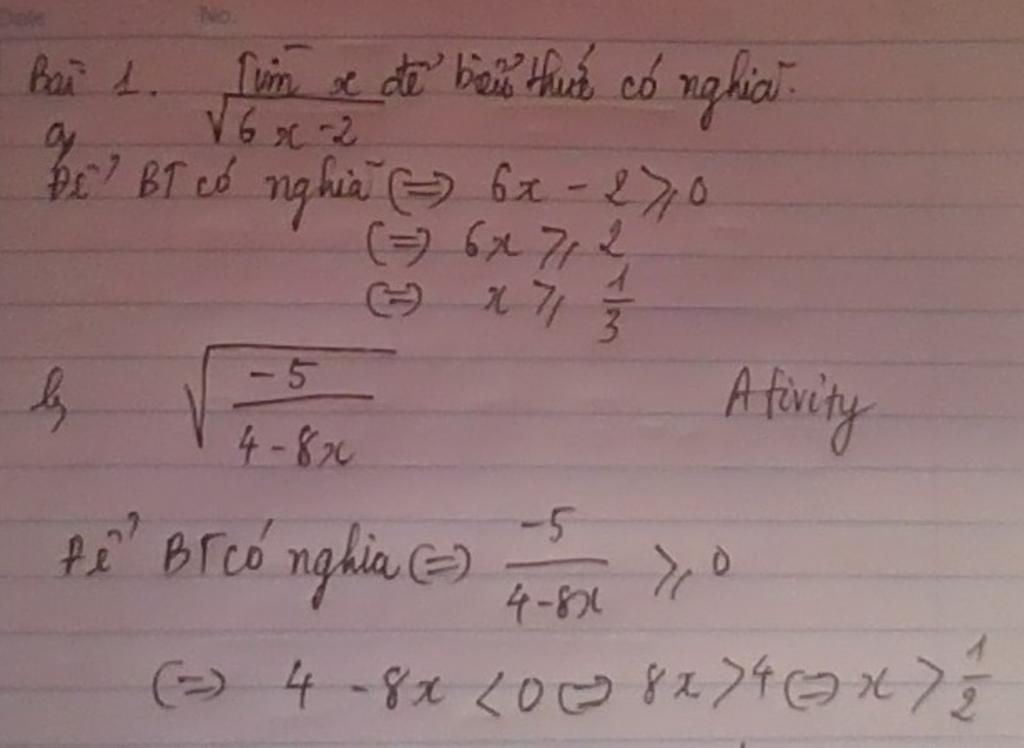 Date No.
Bài 1. Tìm x để biểu thức có nghĩa.
a, √(6x-2)
Để BT có nghĩa (=) 6x - 2 ⩾ 0
(=) 6x ⩾ 2
(=) x ⩾ 1/3
b, √(-5/(4-8x)) Ativity
Để BT có nghĩa (=) -5/(4-8x) ⩾ 0
(=) 4 - 8x < 0 (=) 8x > 4 (=) x > 1/2